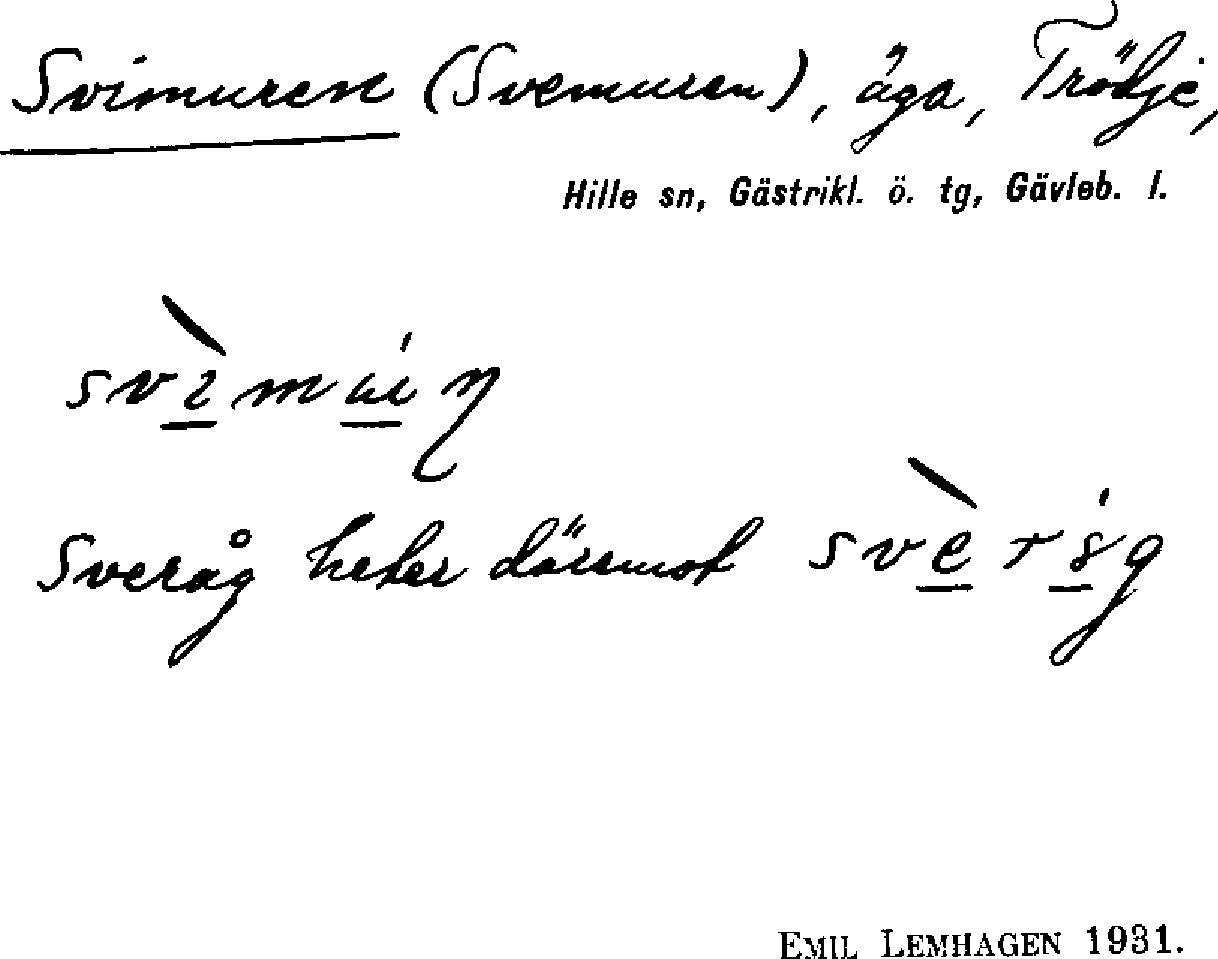 Svimuren (Svemuren), äga, Trödje,
Hille sn, Gästrikl. ö. tg, Gävleb. l.
Sveråg heter däremot
EMIL LEMHAGEN 1931.